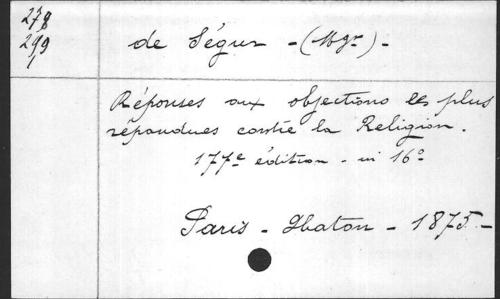 278
299
1
de Ségur - (Mgr) -
Réponses aux objections les plus
répandues contre la Religion.
177e édition - in 16°
Paris - Hbaton - 1875 -